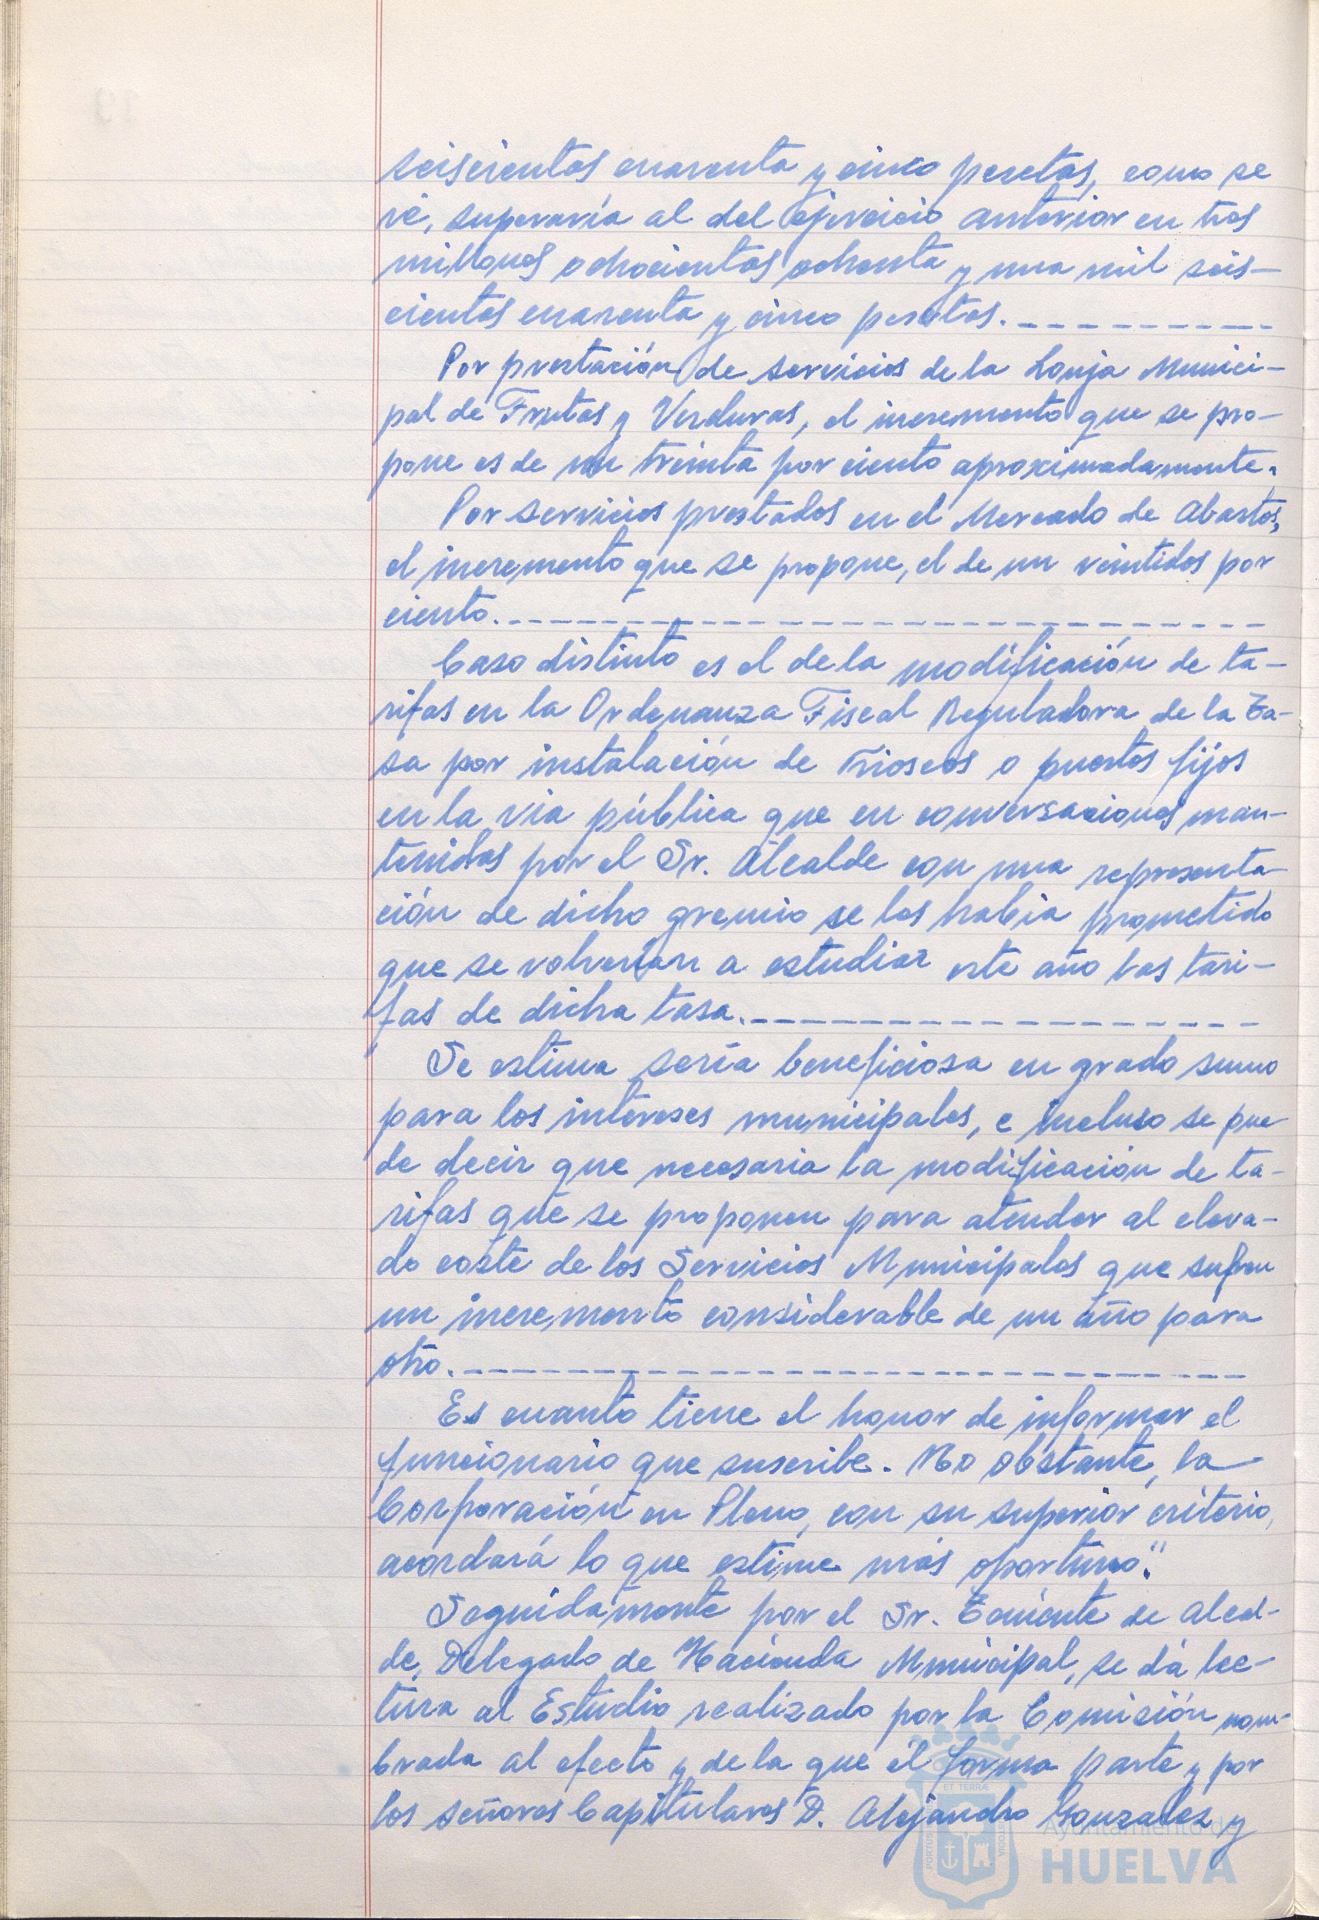 seiscientas cuarenta y cinco pesetas, como se
vé, superaría al del ejercicio anterior en tres
millones ochocientas ochenta y una mil seis-
cientas cuarenta y cinco pesetas.
Por prestación de servicios de la Lonja Munici-
pal de Frutas y Verduras, el incremento que se pro-
pone es de un treinta por ciento aproximadamente.
Por servicios prestados en el Mercado de Abastos,
el incremento que se propone, el de un veintidos por
ciento.
Caso distinto es el de la modificación de ta-
rifas en la Ordenanza Fiscal Reguladora de la Ta-
sa por instalación de Kioscos o puestos fijos
en la via pública que en conversaciones man-
tenidas por el Sr. Alcalde con una representa-
ción de dicho gremio se les habia prometido
que se volverian a estudiar este año las tari-
fas de dicha tasa.
Se estima sería beneficiosa en grado sumo
para los intereses municipales, e incluso se pue
de decir que necesaria la modificación de ta-
rifas que se proponen para atender al eleva-
do coste de los Servicios Municipales que sufren
un incremento considerable de un año para
otro.
Es cuanto tiene el honor de informar el
funcionario que suscribe. No obstante, la
Corporación en Pleno, con su superior criterio,
acordará lo que estime más oportuno."
Seguidamente por el Sr. Teniente de Alcal-
de, Delegado de Hacienda Municipal, se dá lec-
tura al Estudio realizado por la Comisión nom-
brada al efecto y de la que él forma parte y por
los señores Capitulares D. Alejandro Gonzalez y
Ayuntamiento de
HUELVA